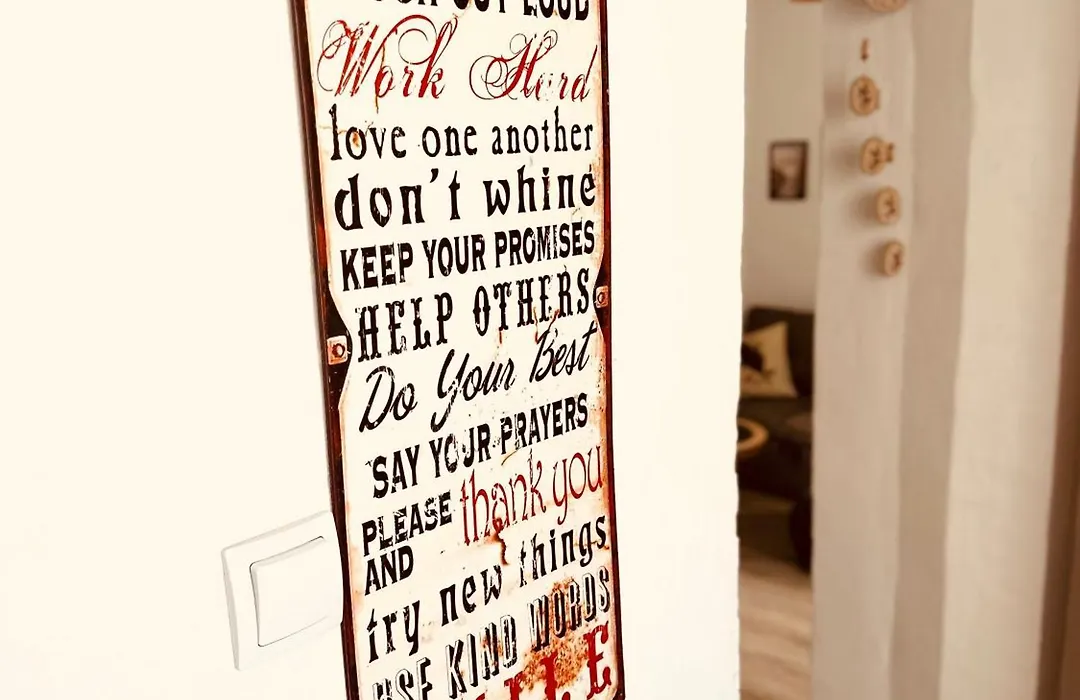 OUT LOUD
Work Hard
love one another
don't whine
KEEP YOUR PROMISES
HELP OTHERS
Do Your Best
SAY YOUR PRAYERS
PLEASE thank you
AND
try new things
USE KIND WORDS